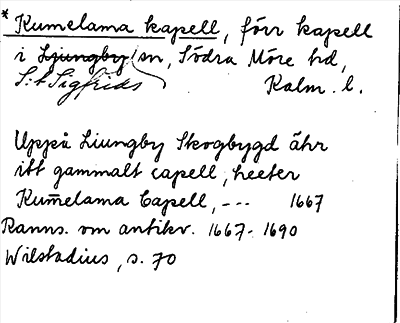 * Kumelama kapell, förr kapell
i Ljungby sn, Södra Möre hd,
S:t Sigfrids Kalm. l.
Uppå Liungby Skogbygd ähr
itt gammalt capell, heeter
Kum̄elama Capell, --- 1667
Ranns. om antikv. 1667-1690
Wilstadius, s. 70